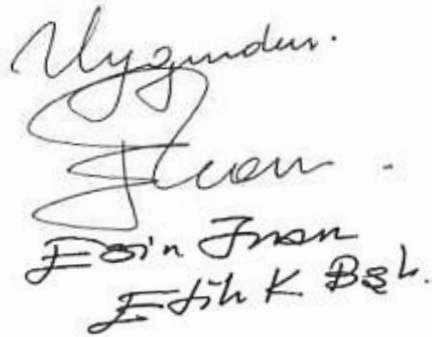 Uygundur.
Esin İnan
Etik K Bşk.